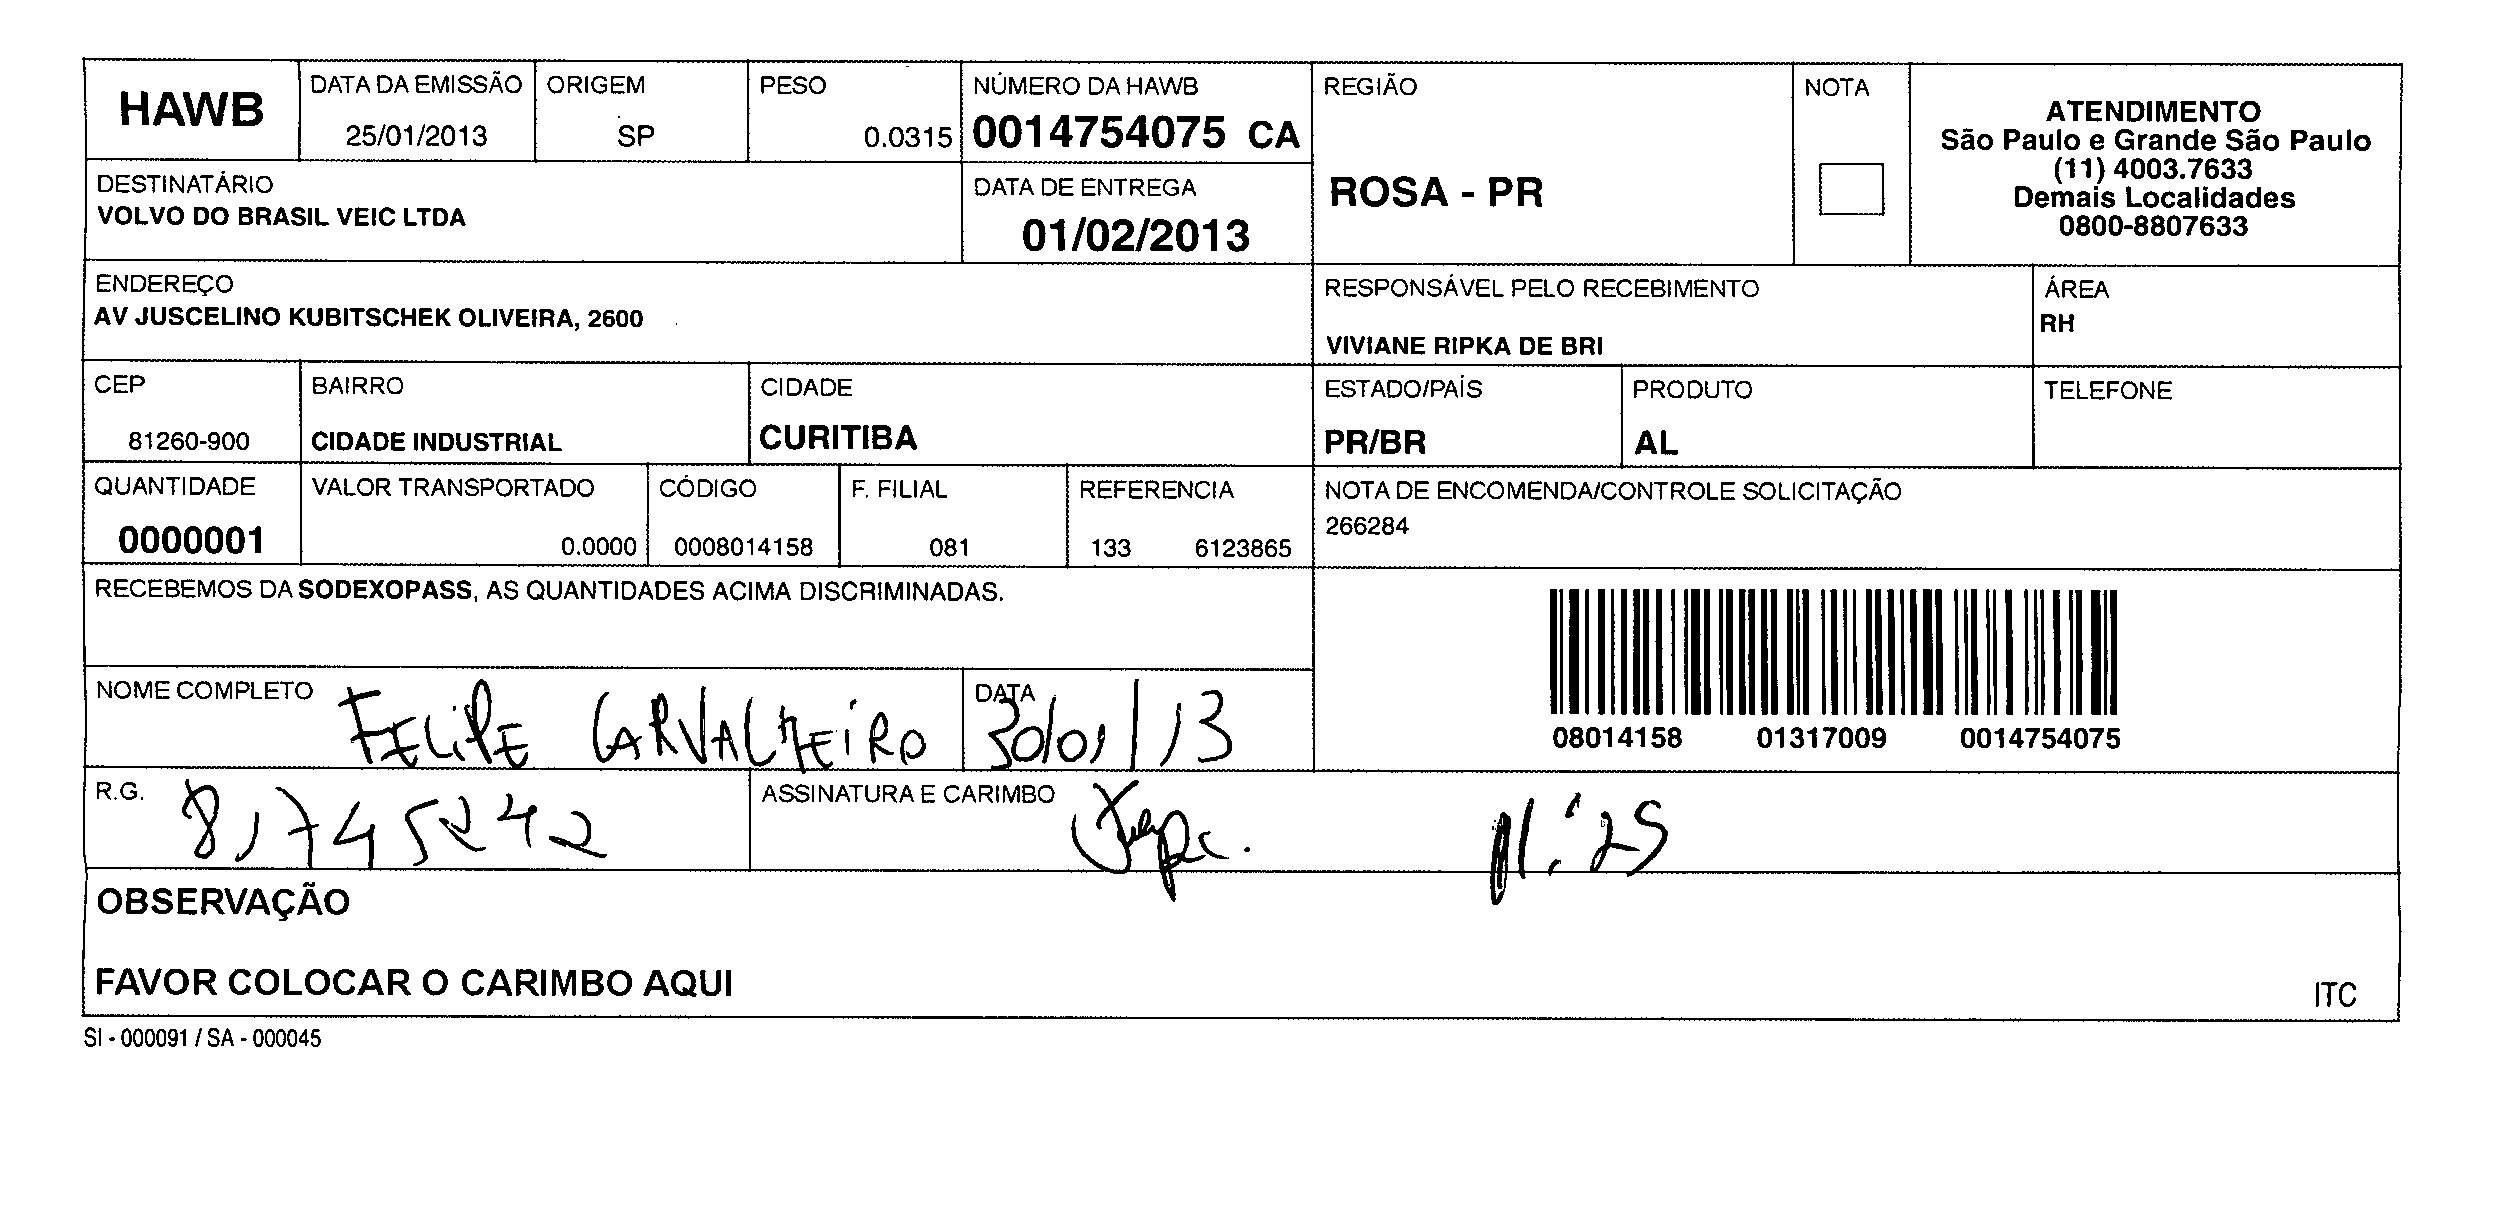 HAWB
DATA DA EMISSÃO
25/01/2013
ORIGEM
SP
PESO
0.0315
NÚMERO DA HAWB
0014754075 CA
REGIÃO
ROSA - PR
NOTA
ATENDIMENTO
São Paulo e Grande São Paulo
(11) 4003.7633
Demais Localidades
0800-8807633
DESTINATÁRIO
VOLVO DO BRASIL VEIC LTDA
DATA DE ENTREGA
01/02/2013
ENDEREÇO
AV JUSCELINO KUBITSCHEK OLIVEIRA, 2600
RESPONSÁVEL PELO RECEBIMENTO
VIVIANE RIPKA DE BRI
ÁREA
RH
CEP
81260-900
BAIRRO
CIDADE INDUSTRIAL
CIDADE
CURITIBA
ESTADO/PAÍS
PR/BR
PRODUTO
AL
TELEFONE
QUANTIDADE
0000001
VALOR TRANSPORTADO
0.0000
CÓDIGO
0008014158
F. FILIAL
081
REFERENCIA
133 6123865
NOTA DE ENCOMENDA/CONTROLE SOLICITAÇÃO
266284
RECEBEMOS DA SODEXOPASS, AS QUANTIDADES ACIMA DISCRIMINADAS.
08014158 01317009 0014754075
NOME COMPLETO
FELIPE CARVALHEIRO
DATA
30/01/13
R.G.
8,745242
ASSINATURA E CARIMBO
11:25
OBSERVAÇÃO
FAVOR COLOCAR O CARIMBO AQUI
ITC
SI - 000091 / SA - 000045